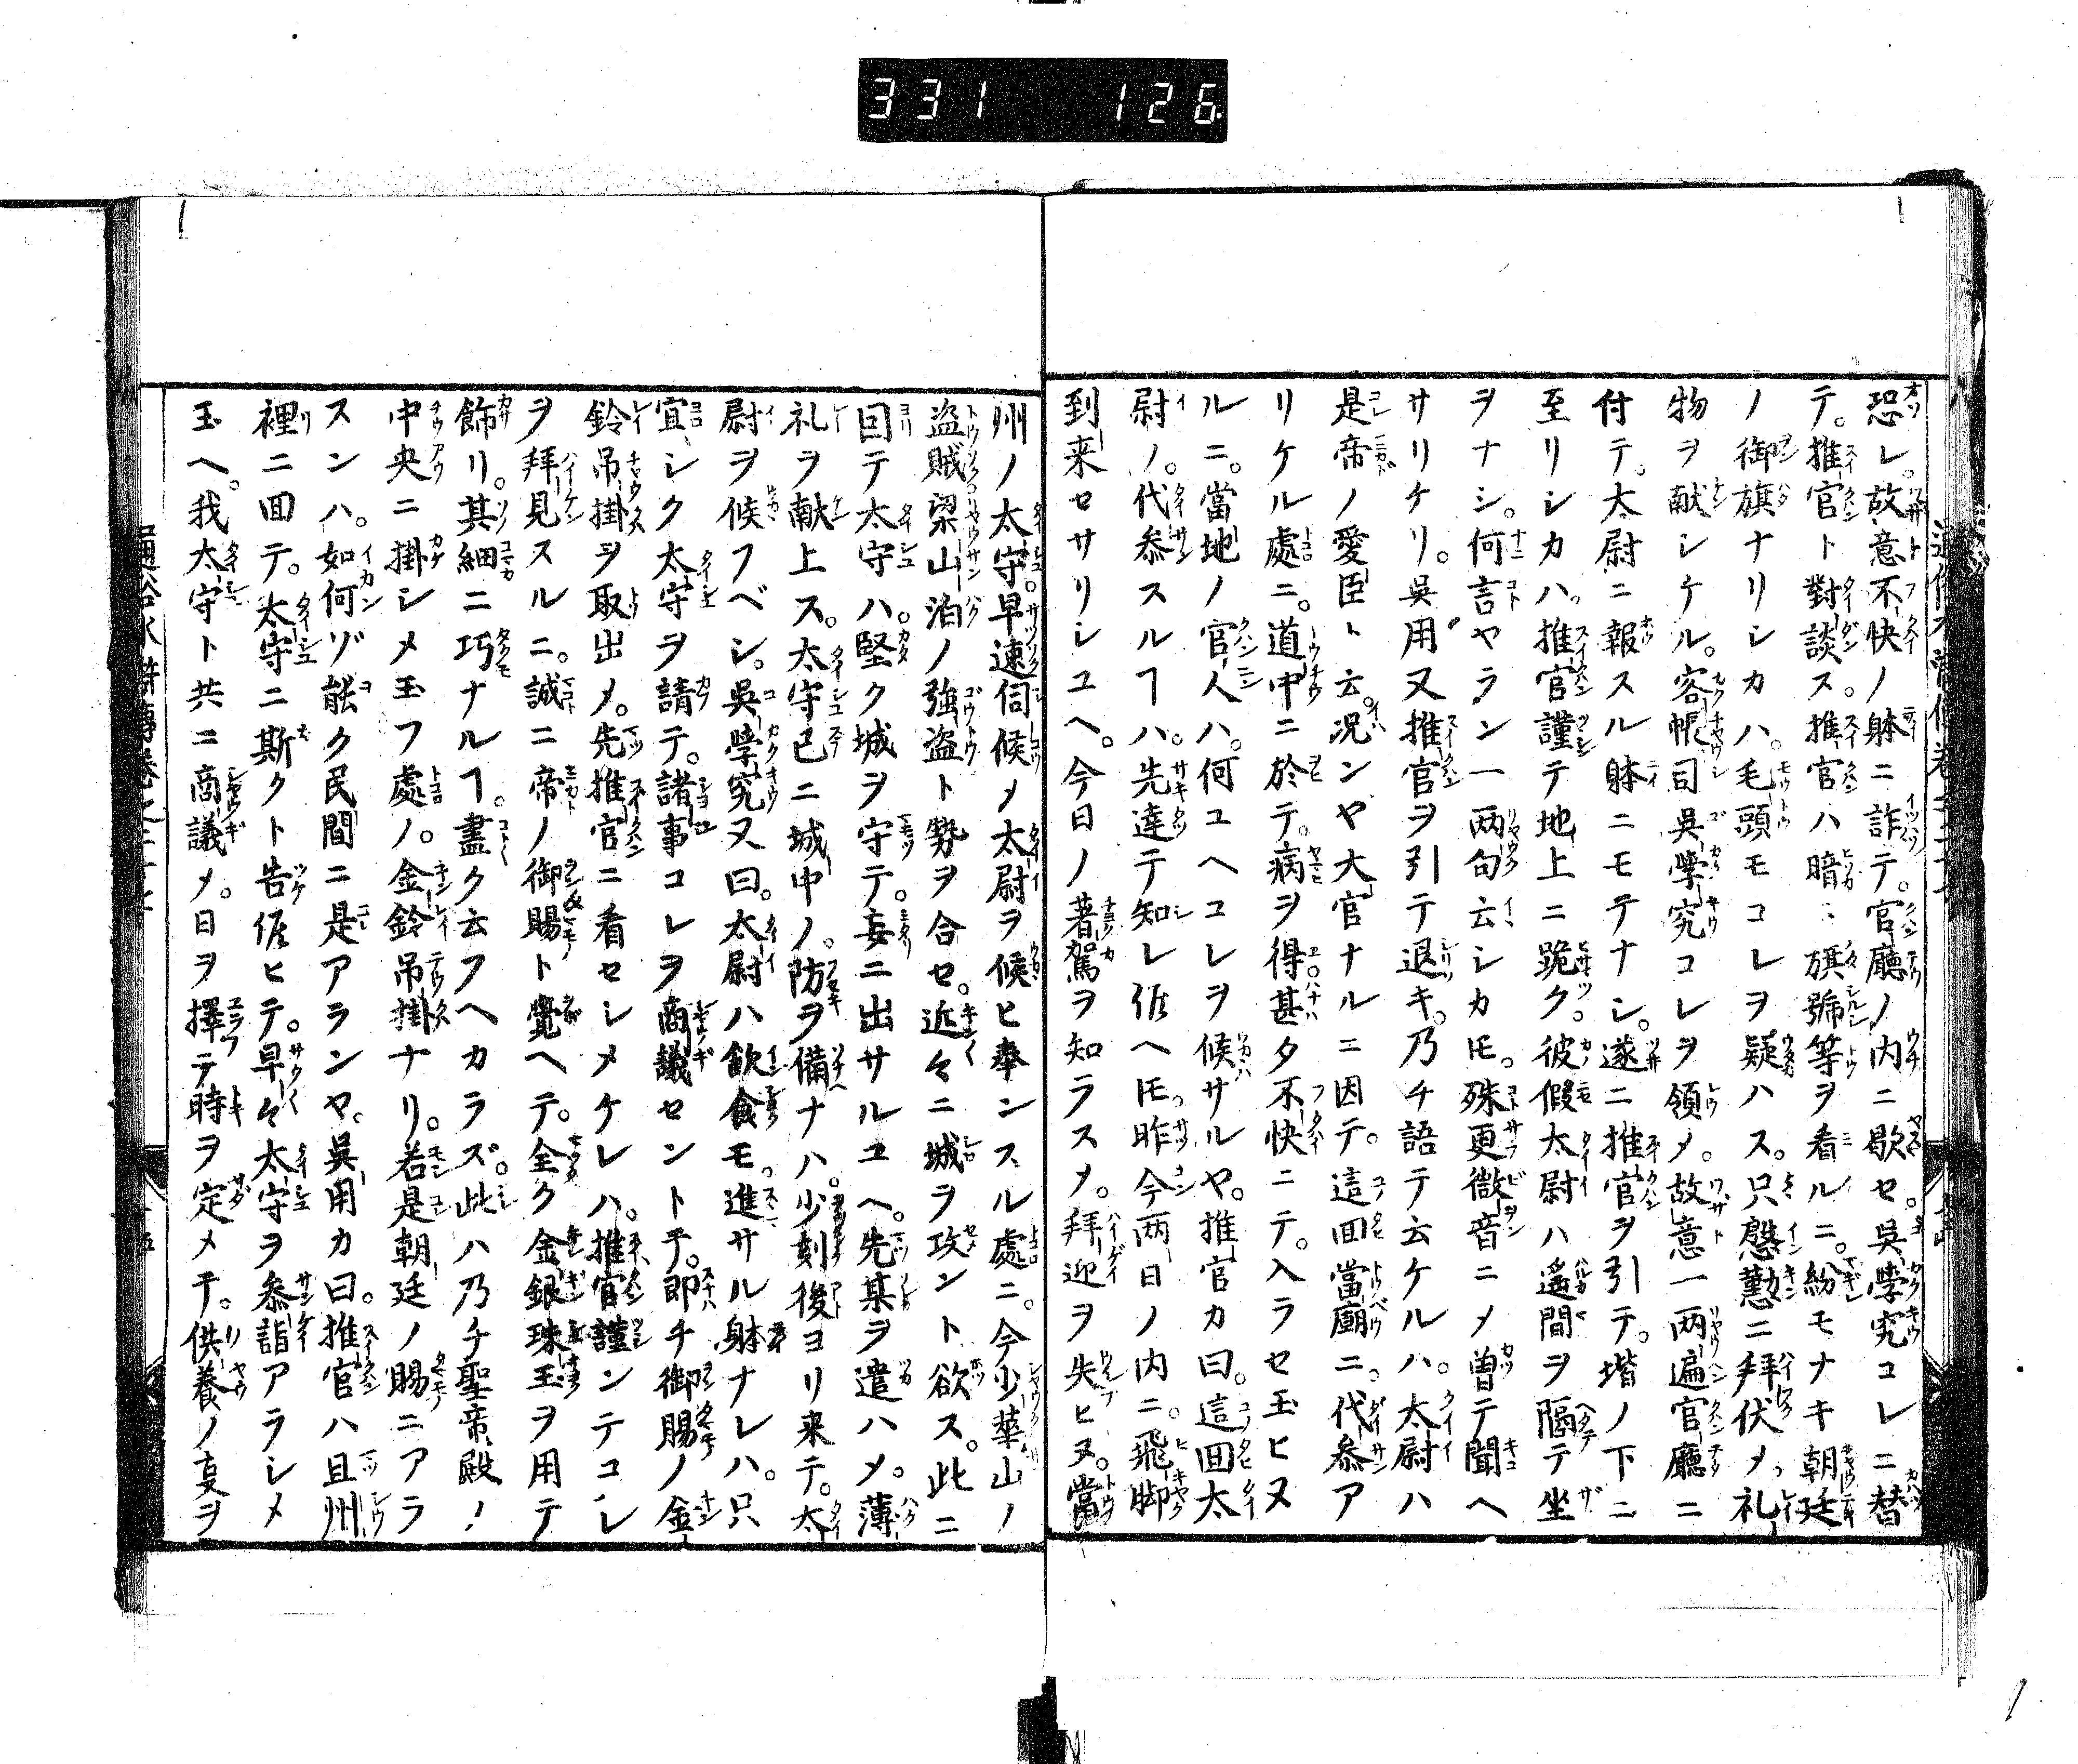 331 126
恐レ。故意不快ノ躰ニ詐テ。官廳ノ内ニ歇セ。吳學究コレニ替
テ。推官ト對談ス。推官ハ暗ニ旗號等ヲ看ルニ。紛モナキ朝廷
ノ御旗ナリシカハ。毛頭モコレヲ疑ハス。只慇懃ニ拜伏メ。礼
物ヲ献シケル。客帳司吳學究コレヲ領メ。故意一两遍官廳ニ
至リシカハ。推官謹テ地上ニ跪ク。彼假太尉ハ遙間ヲ隔テ坐
付テ。太尉ニ報スル躰ニモテナシ。遂ニ推官ヲ引テ。堦ノ下ニ
ヲナシ。何言ヤラン一两句云シカ𪜈。殊更微音ニメ曽テ聞ヘ
サリケリ。吳用又推官ヲ引テ退キ。乃チ語テ云ケルハ。太尉ハ
是帝ノ愛臣ト云。况ンヤ大官ナルニ因テ。這回當廟ニ。代参ア
リケル處ニ。道中ニ於テ。病ヲ得甚タ不快ニテ。入ラセ玉ヒヌ
ルニ。當地ノ官人ハ。何ユヘコレヲ候サルヤ。推官カ曰。這回太
尉ノ。代参スルヿハ。先達テ知レ𫝼ヘ𪜈。昨今两日ノ内ニ。飛脚
到来セサリシユヘ。今日ノ著駕ヲ知ラスメ。拜迎ヲ失ヒヌ。當
州ノ太守。早速伺候メ太尉ヲ候ヒ奉ンスル處ニ。今少華山ノ
盗賊梁山泊ノ強盗ト勢ヲ合セ。近々ニ城ヲ攻ント欲ス。此ニ
回テ太守ハ。堅ク城ヲ守テ。妄ニ出サルユヘ。先某ヲ遣ハメ。薄
礼ヲ献上ス。太守已ニ城中ノ。防ヲ備ナハ。少刻後ヨリ来テ。太
尉ヲ候フベシ。吳學究又曰。太尉ハ飲食モ。進サル躰ナレハ。只
宜シク太守ヲ請テ。諸事コレヲ商議セントテ。即チ御賜ノ金
鈴吊掛ヲ取出メ。先推官ニ看セシメケレハ。推官謹ンテコレ
ヲ拜見スルニ。誠ニ帝ノ御賜ト覺ヘテ。全ク金銀珠玉ヲ用テ
飾リ。其細ニ巧ナルヿ。盡ク云フヘカラズ。此ハ乃チ聖帝殿ノ
中央ニ掛シメ玉フ處ノ。金鈴吊掛ナリ。若是朝廷ノ賜ニアラ
スンハ。如何ゾ能ク民間ニ是アランヤ。吳用カ曰。推官ハ且州
裡ニ回テ。太守ニ斯クト告𫝼ヒテ。早々太守ヲ参詣アラシメ
玉ヘ。我太守ト共ニ商議メ。日ヲ擇テ時ヲ定メテ。供養ノ㕝ヲ